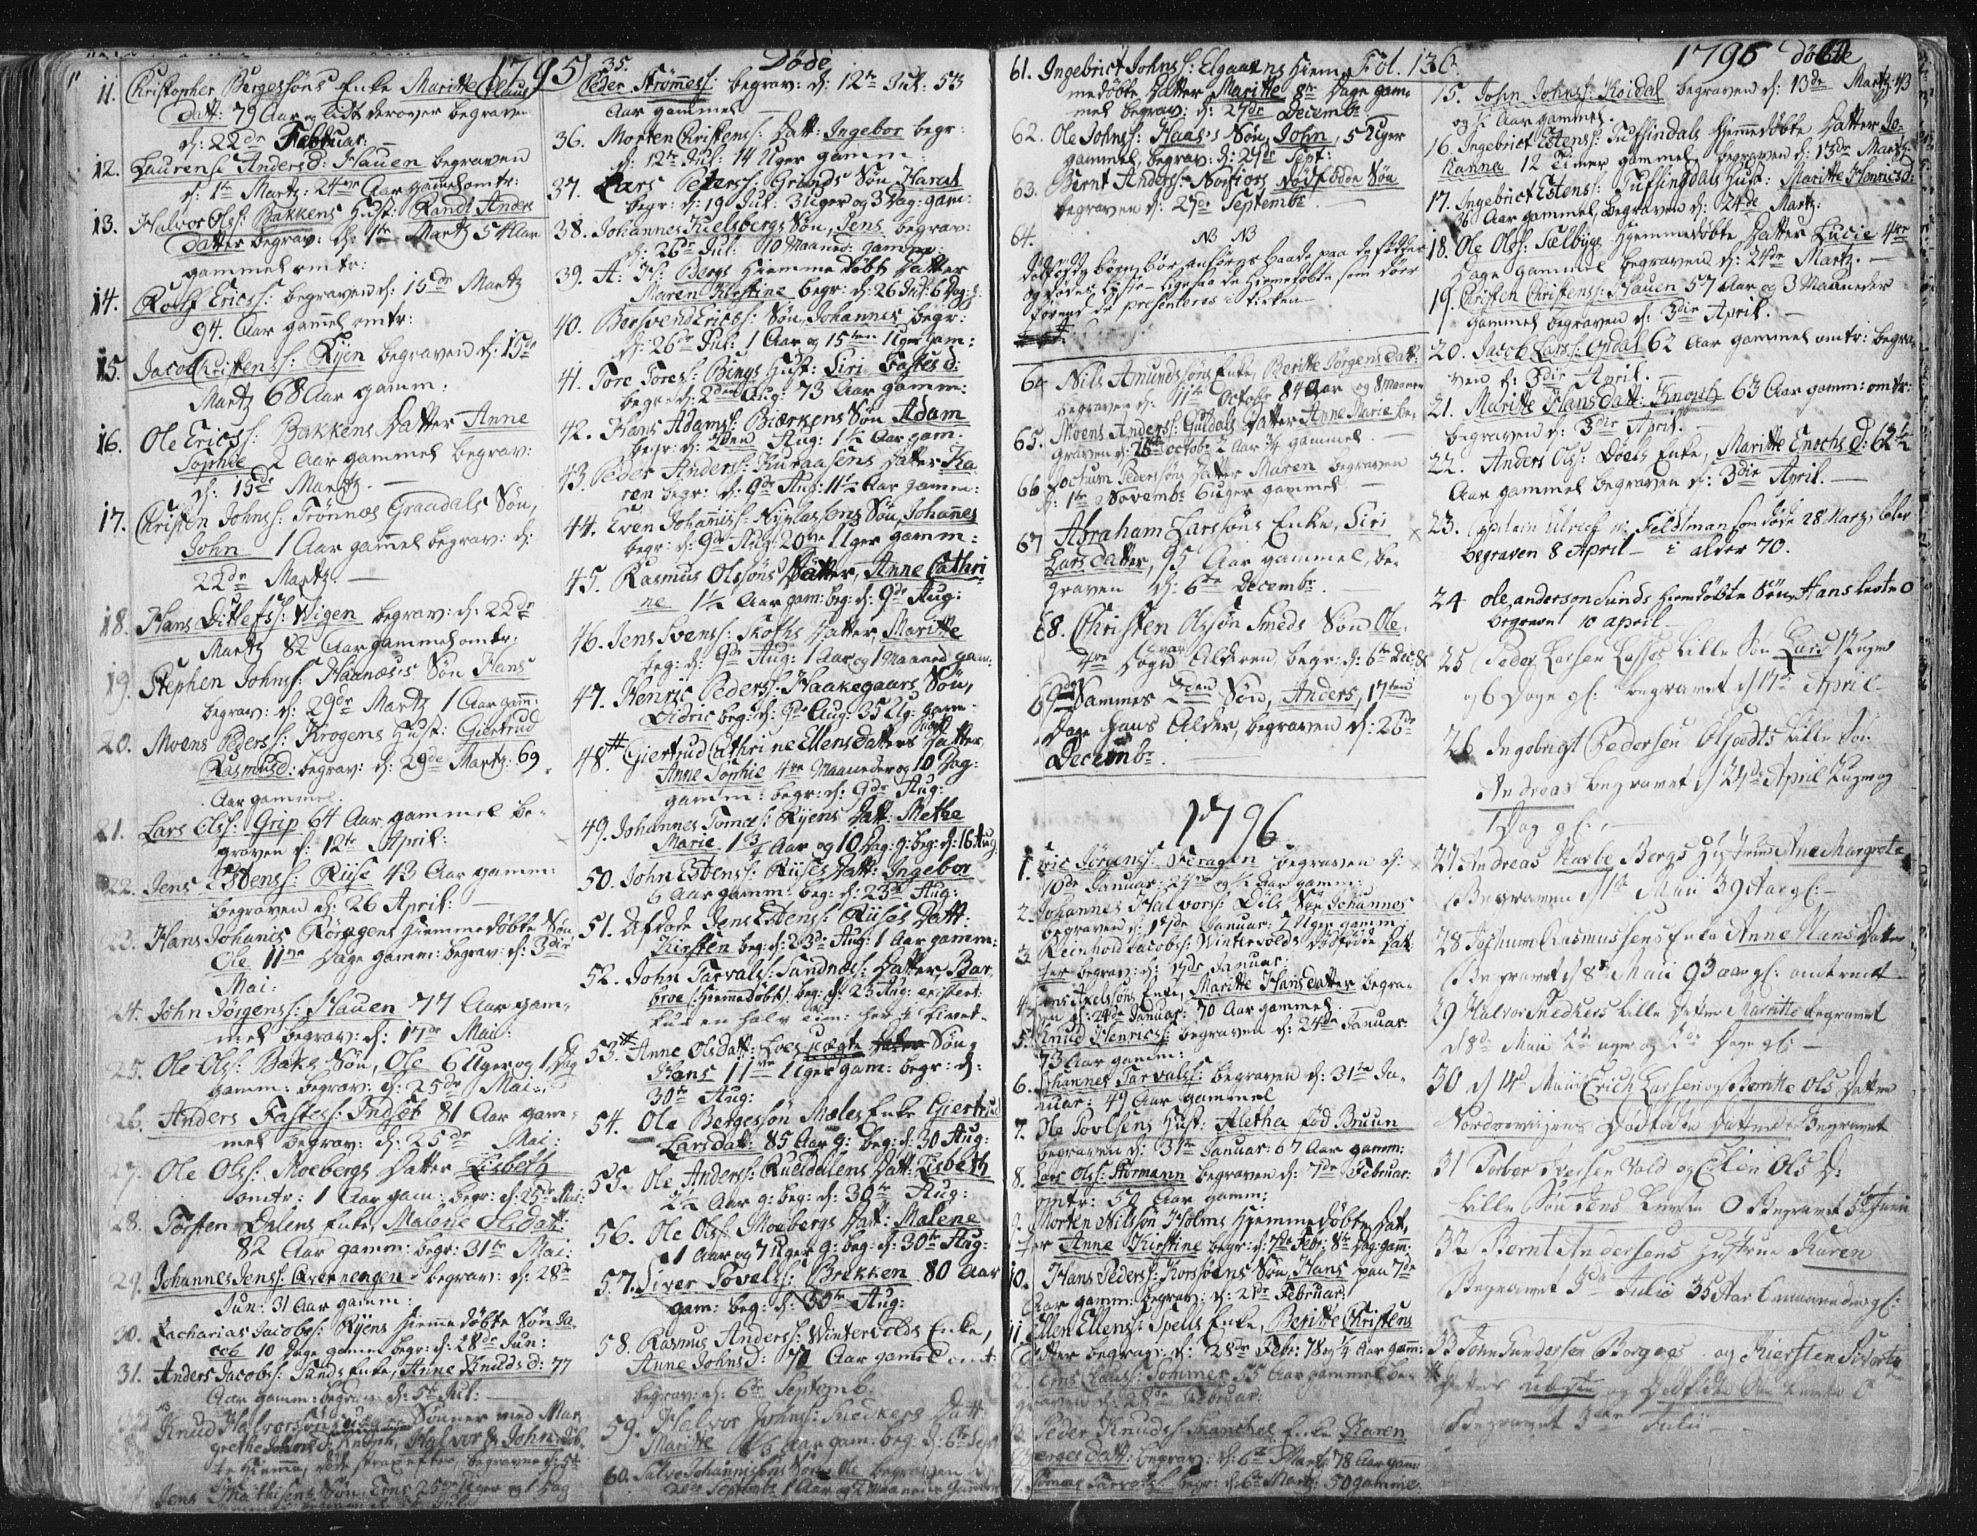 1795 Døde
11. Christopher Bergessöns Enke Maritte Claus
Datt: 79 Aar og lidt derover begraven
d: 22de Februar.
12. Laurense Andersd: Hauen begraven
d: 1te Martz: 24 Aar gammel omtr:
13. Halvor Ols: Bakkens Hust: Randi Anders
datter begrav: d: 1te Martz 54 Aar
gammel omtr:
14. Rolf Erics: begraven d: 15de Martz
94. Aar gamel omtr:
15. Jacob Christens: Ryen begraven d: 15de
Martz 68 Aar gamm:
16. Ole Erics: Bakkens Datter Anne
Sophie 2 Aar gammel begrav:
d: 15de Martz.
17. Christen Johns: Trönnes Graadals Sön,
John 1 Aar gamel begrav: d:
22de Martz.
18. Hans Ditlefs: Wigen begrav: d: 22de
Martz 82 Aar gammel omtr:
19. Stephen Johns: Haanæs's Sön Hans
begrav: d: 29de Martz 1 Aar gam:
20. Moens Peders: Krogens Hust: Giertrud
Rasmusd: begrav: d: 29de Martz: 69
Aar gammel
21. Lars Ols: Grip 64 Aar gammel be-
graven d: 12te April:
22. Jens Estens: Riise 43 Aar gamm:
begraven d: 26 April:
23. Hans Johanes Röragens hiemmedøbte Sön
Ole 11 Dage gamm: begrav: d: 3die
Mai:
24. John Jörgens: Hauen 77 Aar gam-
mel begrav: d: 17de Mai:
25. Ole Ols: Bakes Sön, Ole 6 Uger og 1 Dag
gamm: begrav: d: 25de Mai:
26. Anders Fastes: Indset 81 Aar gam-
mel begrav: d: 25de Mai:
27. Ole Ols: Moebergs Datter Lisbeth
omtr: 1 Aar gam: begr: d: 25de Mai:
28. Torsten Enke Malene Olsdatt:
82 Aar gamm: begr: 31te Mai:
29. Johannes Jens: begrav: d: 28de
Jun: 31 Aar gamm:
30. Zacharias Jacobs: Ryens hiemmedøbte Sön Ja-
cob 10 Dage gamm. begr: d: 28de Jun:
31. Anders Jacobs: Sands Enke, Anne Knudsd: 77
Aar gamm: begrav: d: 5te Jul:
Knud Halvorsöns Sönner med Mar-
grethe Johnsd: Halvor & John
begravne d: 5te
Jens Mathisens Sön, Uger og 1 Dag
35. Peder Strömmes: begrav: d: 12te Jul: 53
Aar gammel
36. Morten Christens: Datt: Ingebor begr:
d: 12te Jul: 14 Uger gamm:
37. Lars Peters: Grinds Sön Haral
begr: d: 19 Jul: 3 Uger og 3 Dag: gam:
38. Johannes Kielsbergs Sön, Jens begrav:
d: 26de Jul: 10 Maaned: gamm:
39. A: Js: Bergs hiemmedøbt Datter
Maren Kirstine begr: d: 26 Jul: 6 Dag: g:
40. Bersvend Erics: Sön Johannes begr:
d: 26de Jul: 1 Aar og 15ten Uger gam:
41. Tore Tores: Bings Hust: Siri Fastesd:
begr: d: 2den Aug: 73 Aar gamm:
42. Hans Adams: Biærkens Sön Adam
begr: d: 2den Aug: 1½ Aar gam:
43. Peder Anders: Kuraasens Datter Ka-
ren begr: d: 9de Aug: 11½ Aar gamm:
44. Even Johanis: Nyplassens Sön, Johannes
begr: d: 9de Aug: 20 Uger gamm:
45. Rasmus Olssöns Datter, Anne Cathri-
ne 1½ Aar gam: beg: d: 9de Aug:
46. Jens Svens: Skotts Datter, Maritte
beg: d: 9de Aug: 1 Aar og 1 Maaned gam:
47. Henric Peders: Haakegaars Sön,
Didric beg: d: 9de Aug: 35 Ug: gam:
48. Giertrud Cathrine Ellensdatters Datter,
Anne Sophie 4re Maaneder og 10 Dag:
gamm: begr: d: 9de Aug:
49. Johannes Tomes: Ryens Datt: Methe
Marie 1 Aar og 10 Dag: g: beg: d: 16 Aug
50. John Estens: Riises Datt: Ingebor
6 Aar gamm: beg: d: 23de Aug:
51. Afdøde Jens Estens: Riises Datt:
Kirsten beg: d: 23de Aug: 1 Aar gamm:
52. John Tarvals: Sandnes: Datter Bar-
broe (hiemmedøbt) beg: d: 23 Aug:
kun en halv Tim:
53. Anne Olsdatt: Loes uægte Sön,
Hans 11 Uger gam: begr: d:
30te Aug:
54. Ole Bergessön Mæles Enke Giertrud
Larsdatt: 85 Aar g: beg: d: 30 Aug:
55. Ole Anders: Datt: Lisbeth
2½ Aar g: beg: d: 30te Aug:
56. Ole Ols: Moebergs Datt: Malene
1 Aar og 7 Uger g: beg: d: 30te Aug:
57. Siver Povels: Brekken 80 Aar
gam: beg: d: 30te Aug:
58. Rasmus Anders: Wintervolds Enke,
Anne Johnsd: Aar gamel omt:
begrav: d: 6te Septemb.
59. Halvor Johns: Snedkers Datt:
Maritte Aar gam: beg: d: 6te Sept
60. Salve Johannissöns Sön Ole begraven d:
20de Septembr 1 Aar og 2 Maaneder gammel
Fol. 136.
61. Ingebrict Johns: Elgaaens hiem-
medøbte Datter Maritte 8te Dage gam-
mel begrav: d: 27de Decembr
62. Ole Johns: Haas's Sön John, 5 Uger
gammel, begrav: d: 27de Sept:
63. Bernt Anders: Dødfödde Sön
begraven d: 27de Septembr.
64.
NB NB
bör anføres baade paa de fødder
og dødes Liste - ligesaa de hiemedøbte som döer
forend de presenteres i kirken
64 Nils Amundssöns Enke, Beritte Jörgensdatt:
begraven d: 11te Octobr 84 Aar og 8 Maaneder
65. Moens Anders: Guldals Datter Anne Marie be-
graven d: octobr 2 Aar ¾ gammel.
66 Jochum Pederssöns Datter Maren begraven
d: 1te Novembr 6 uger gammel
67 Abraham Larssöns Enke, Siri
Larsdatter, 95 Aar gammel, be-
graven d: 6te Decembr.
68. Christen Olssön Smeds Sön Ole,
4re Dage var Alderen begr: d: 6te Dec:
69. Sammes 2den Sön, Anders, 17ten
Dage hans Alder, begraven d: 26de
Decembr.
1796
1. Eric Jörgens: Feragen begraven d:
10de Januar: 24 og ½ Aar gamm:
2. Johannes Halvors: Dils Sön Johannes
begraven d: 17de Januar: 7 Uger gamm.
3. Reinhold Jacobs: Wintervolds Dødfødde Dat-
ter begrav: d: 17de Januar.
4. Jens Axelssöns Enke, Maritte Hansdatter begra-
ven d: 24de Januar: 70 Aar gammel
5. Knud Henrics: begraven d: 24de Januar.
73 Aar gamm:
6. Johannes Tarvals: begraven d: 31te Ja-
nuar: 49 Aar gammel
7. Ole Povlsens Hust: Aletha fød Bruun
begraven d: 31te Januar: 67 Aar gamm:
8. Lars Ols: Hormann begraven d: 7de Februar:
omtr: 50 Aar gamm:
9. Morten Nilssön Holms Hjemmedøbte Dat-
ter Anne Kirstine begr: d: 7de Febr: 8te Dag: gam:
10. Hans Peders: Korssöens Sön, Hans paa 7de
Aar gamm: begrav: d: 21de Februar:
11. Ellen Ellens: Spells Enke, Beritte Christens
Datter begrav: d: 28de Febr: 78 og ¼ Aar gam:
12. Jens Clauss: Sommer 55 Aar gammel be-
graven d: 28de Februar:
13. Peder Knuds: Skanckes Enke Karen
datt: begrav: d: 6te Martz 78 Aar gam:
14. Tomas begr: d: 6te Martz: 50 gamme
1796 døbte
15. John Johns: Koidal begraven d: 13de Martz 43
og ½ Aar gammel.
16. Ingebrict Estens: Tufsindals hjemmedøbte Datter Jo-
hanna 12 Timer gammel, begraven d: 13de Martz
17. Ingebrict Estens: Tufsingdals Hust: Maritte Henricsd:
Aar gammel, begraven d: 24de Martz:
18. Ole Ols: Sælbygs hjemmedøbte Datter Lucie 4re
Dage gammel begraven d: 24de Martz.
19. Christen Christens: Hauen 57 Aar og 3 Maaneder
gammel begraven d: 3die April.
20. Jacob Lars: Opdal 62 Aar gammel omtr: begra-
ven d: 3die April.
21. Maritte Hansdatt: Knorts 63 Aar gamm: omtr:
begraven d: 3die April.
22. Anders Ols: Döels Enke, Maritte Enochsd: 62½
Aar gammel begraven d: 3die April.
23. Captein Ulrich v: Feldtman som døde 28 Martz, blev
begraven 8 April – i alder 70.
24 ole anderson Sunds hiemdøbte Søn Hans levte 0
begravet 10 april
25 Peder Larsen Lasses Lille Søn Lars Uger
og 6 Dage gl: begravet d 17de April
26 Ingebrigt Pedersen Lille Søn
Andreas begravet d 24de April Uger og
1 Dag gl:
27 Andreas Bergs Hustrue Ane Margrete
Begraven d 1te Maii 39 Aar gl:
28 Jochum Rasmussens Enke Anne Hans Datter
Begravet d 8de Maii 93 aar gl: omtrent
29 Halvor Snedkers Lille Datter Maritte Begravet
d 8de Maii uger og Dage gl:
30 d Maii Erich Larsen og Beritte Ols Datter
Dødfødte Datter Begravet
31 Torber Iversen Vold og Elin Ols D:
Lille Søn Jens Levte 0 Begravet 5te Junii
32 Bernt Andersens Hustrue Karen
Begravet 3de Julii 35 Aar maaneder gl:
33 John Gundersen Borgos og Kiersten Siverts
Datter uægte og Dødfødte Søn Levte 0
Begravet 3de Julii